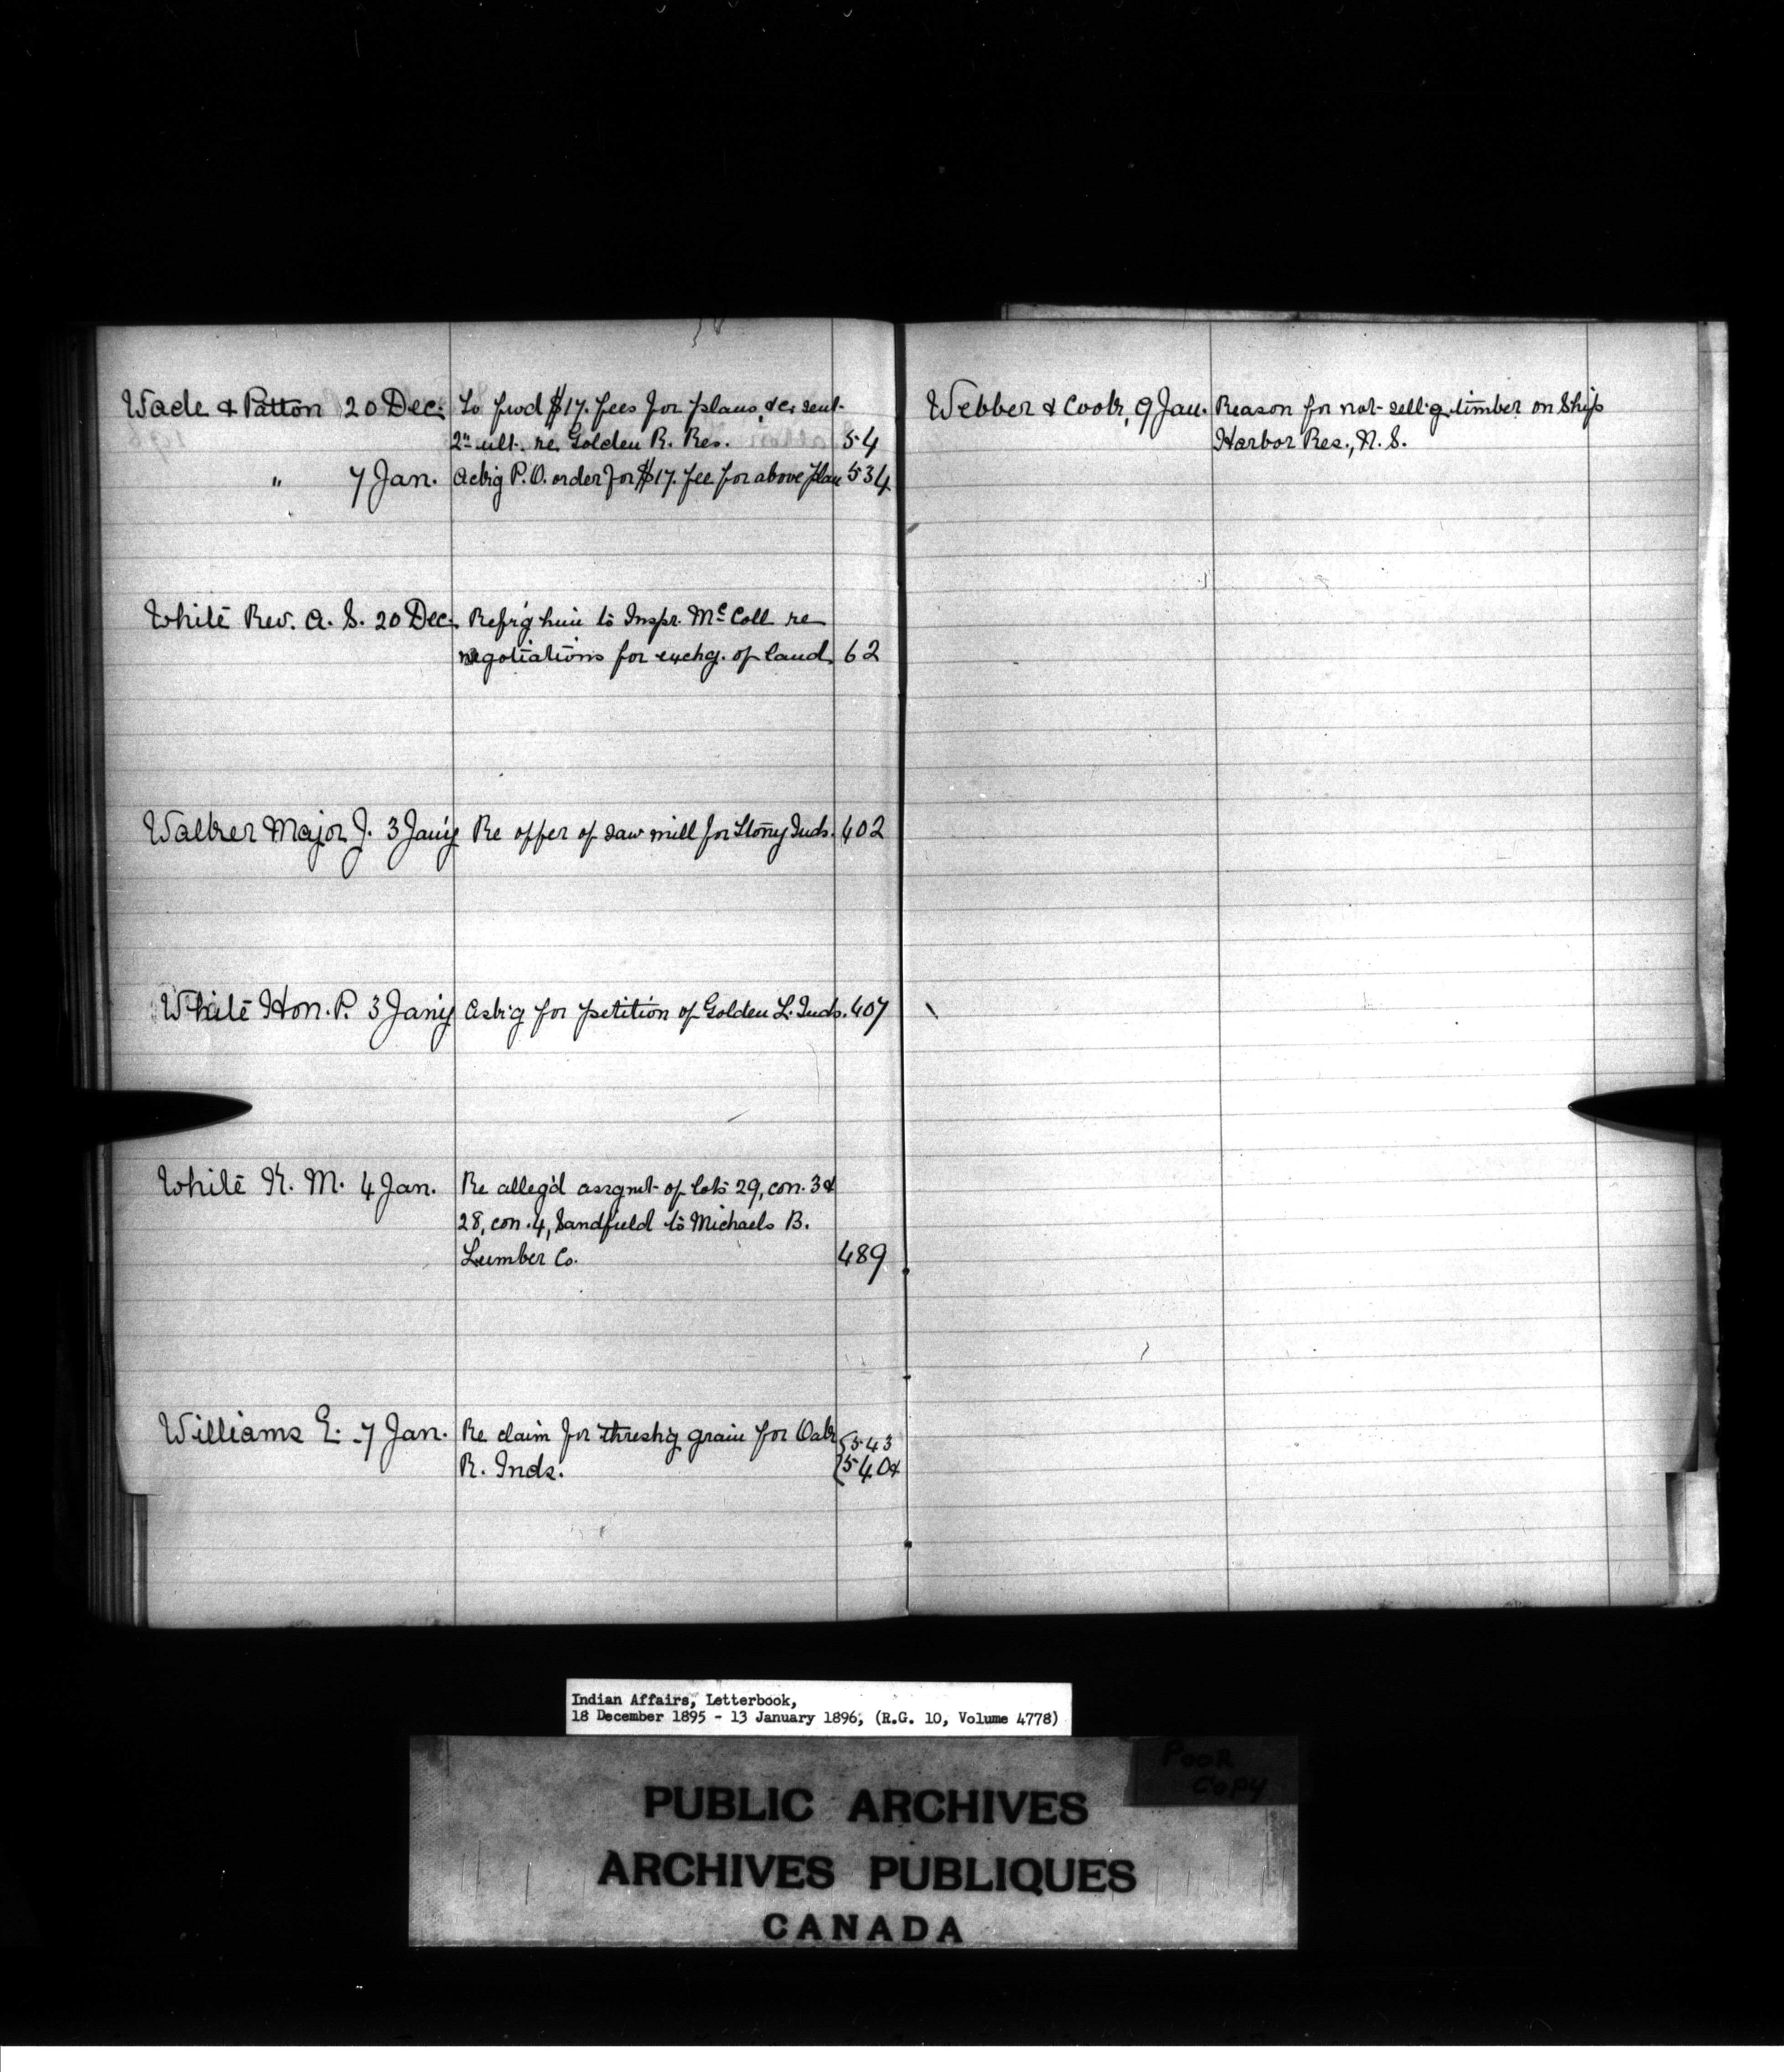 Wade & Patton 20 Dec. To fwd $17. fees for plans, &c. sent
2nd ult. re Golden R. Res. 54
" 7 Jan. Ackg P.O. order for $17. fee for above plan 534
White Rev. A. S. 20 Dec. Refr'g him to Inspr. McColl re
negotiations for exchg. of land. 62
Walker Major J. 3 Jan'y Re offer of saw mill for Stony Inds. 402
White Hon. P. 3 Jan'y Ask'g for petition of Golden L. Inds. 407
White R. M. 4 Jan. Re alleg'd assgnt of lots 29, con. 3 &
28, con. 4, Sandfield to Michaels B.
Lumber Co. 489
Williams E. 7 Jan. Re claim for thresh'g grain for Oak { 543
R. Inds. { 540 &
Webber & Cook, 9 Jan. Reason for not sell'g timber on Ship
Harbor Res., N. S.
Indian Affairs, Letterbook,
18 December 1895 - 13 January 1896, (R.G. 10, Volume 4778)
POOR
COPY
PUBLIC ARCHIVES
ARCHIVES PUBLIQUES
CANADA